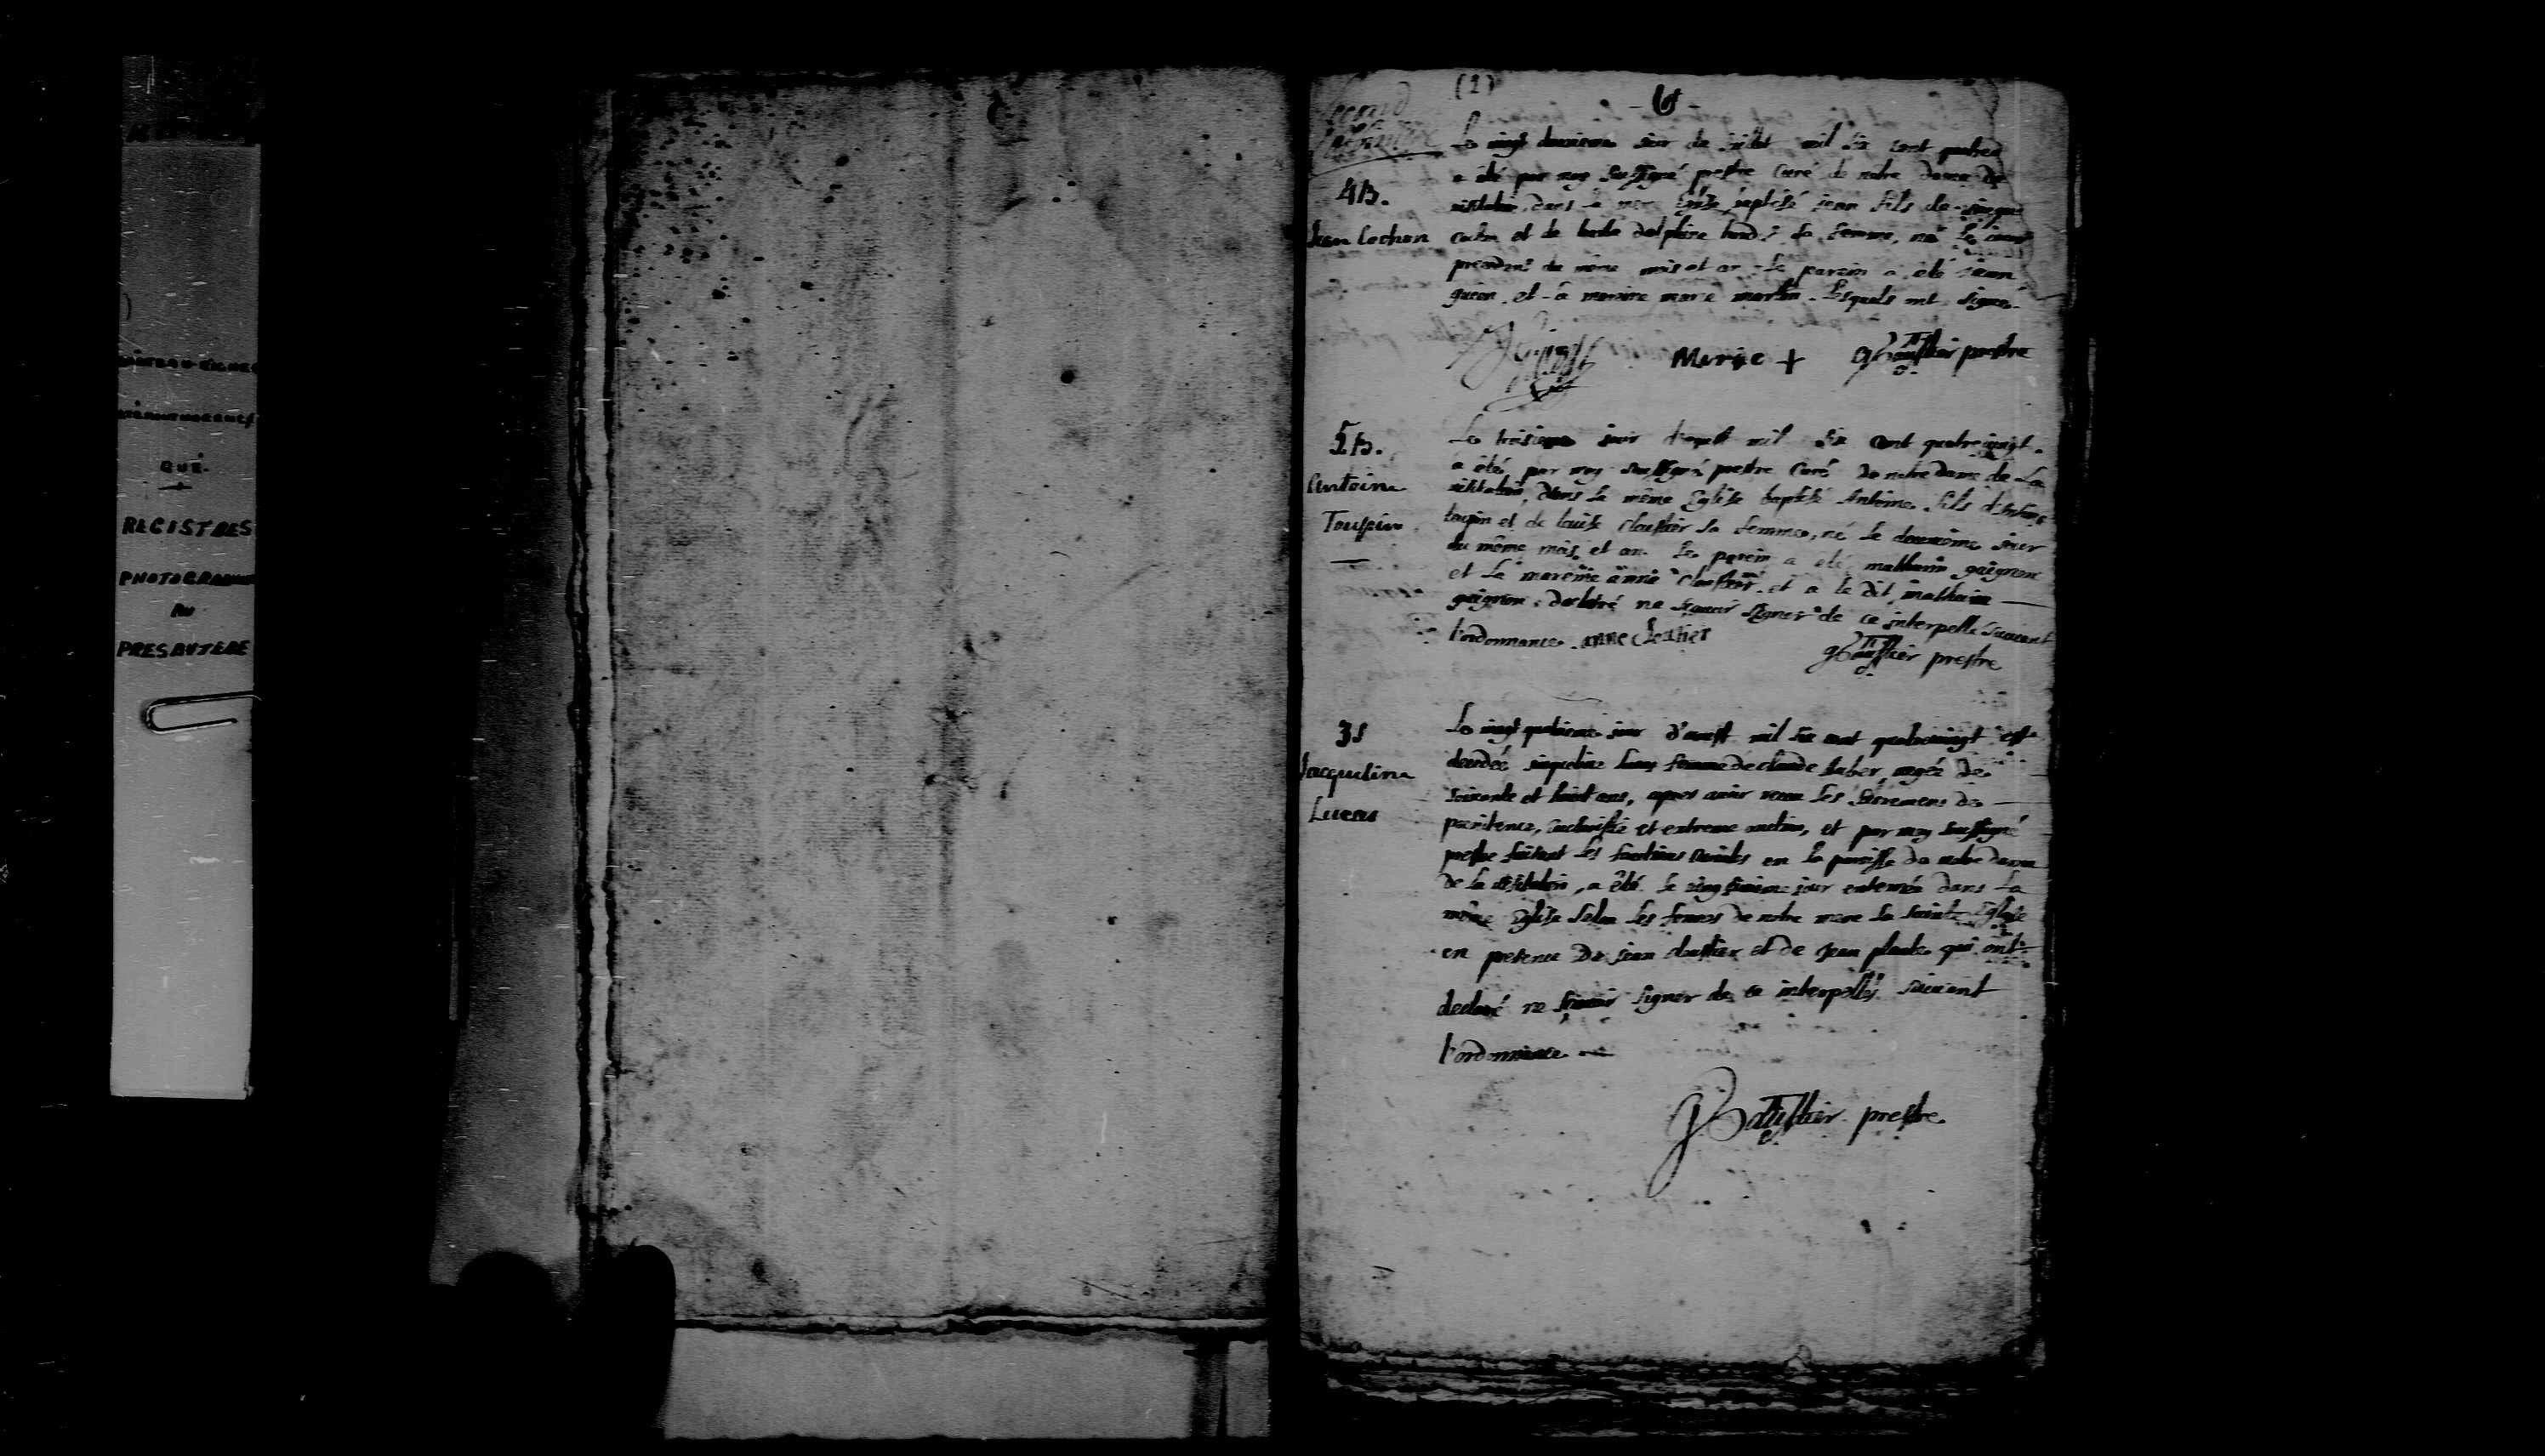 QUÉ.
REGISTRES
AU
PRESBYTERE
(2)
4B.
Jean Cochon
Le vingt deuxieme jour de juillet mil six cent quatre
a été par moy soussigné prestre Curé de notre dame de
dans la même Eglise baptisé jean fils de
et de sa femme, né le jour
precedent du même mois et an le parein a été jean
et la mareine marie martin. Lesquels ont signe.
Marie + gGaultier prestre
5B.
Antoine
Toupin
Le troisieme jour d'aoust mil six cent quatrevingt.
a été par moy soussigné prestre Curé de notre dame de La
visitation, dans la même Eglise baptisé Antoine fils d'Antoine
toupin et de louise Cloustier sa femme, né le deuxieme jour
du même mois et an. Le parein a été mathurin gaignon
et La mareine anne Cloustier. et a le dit mathurin
gaignon declaré ne sçavoir signer de ce interpellé suivant
l'ordonnance. anne cloutier
gGaultier prestre
3S
Jacqueline
Lucas
Le vingt quatrieme jour d'aoust mil six cent quatrevingt est
decedée jaqueline lucas femme de claude auber, aagée de
soixante et huict ans, apres avoir receu les Sacremens de
penitence, eucharistie et extreme onction, et par moy soussigné
prestre faisant les fonctions Curiales en la paroisse de notre dame
de la visitation, a été le jour enterrée dans La
même Eglise selon les formes de notre mere la sainte Eglise
en presence de jean cloustier et de jean plante qui ont
declaré ne sçavoir signer de ce interpellés suivant
l'ordonnance
gGaultier prestre